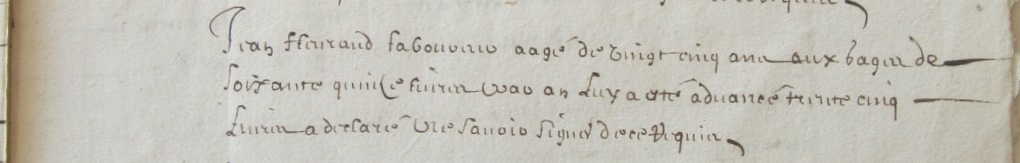 Jean ffleurand laboureur aagé de vingt cinq ans aux gages de
soixante quinze livres par an luy a esté advancé trente cinq
livres a declaré ne scavoir signer de ce requis